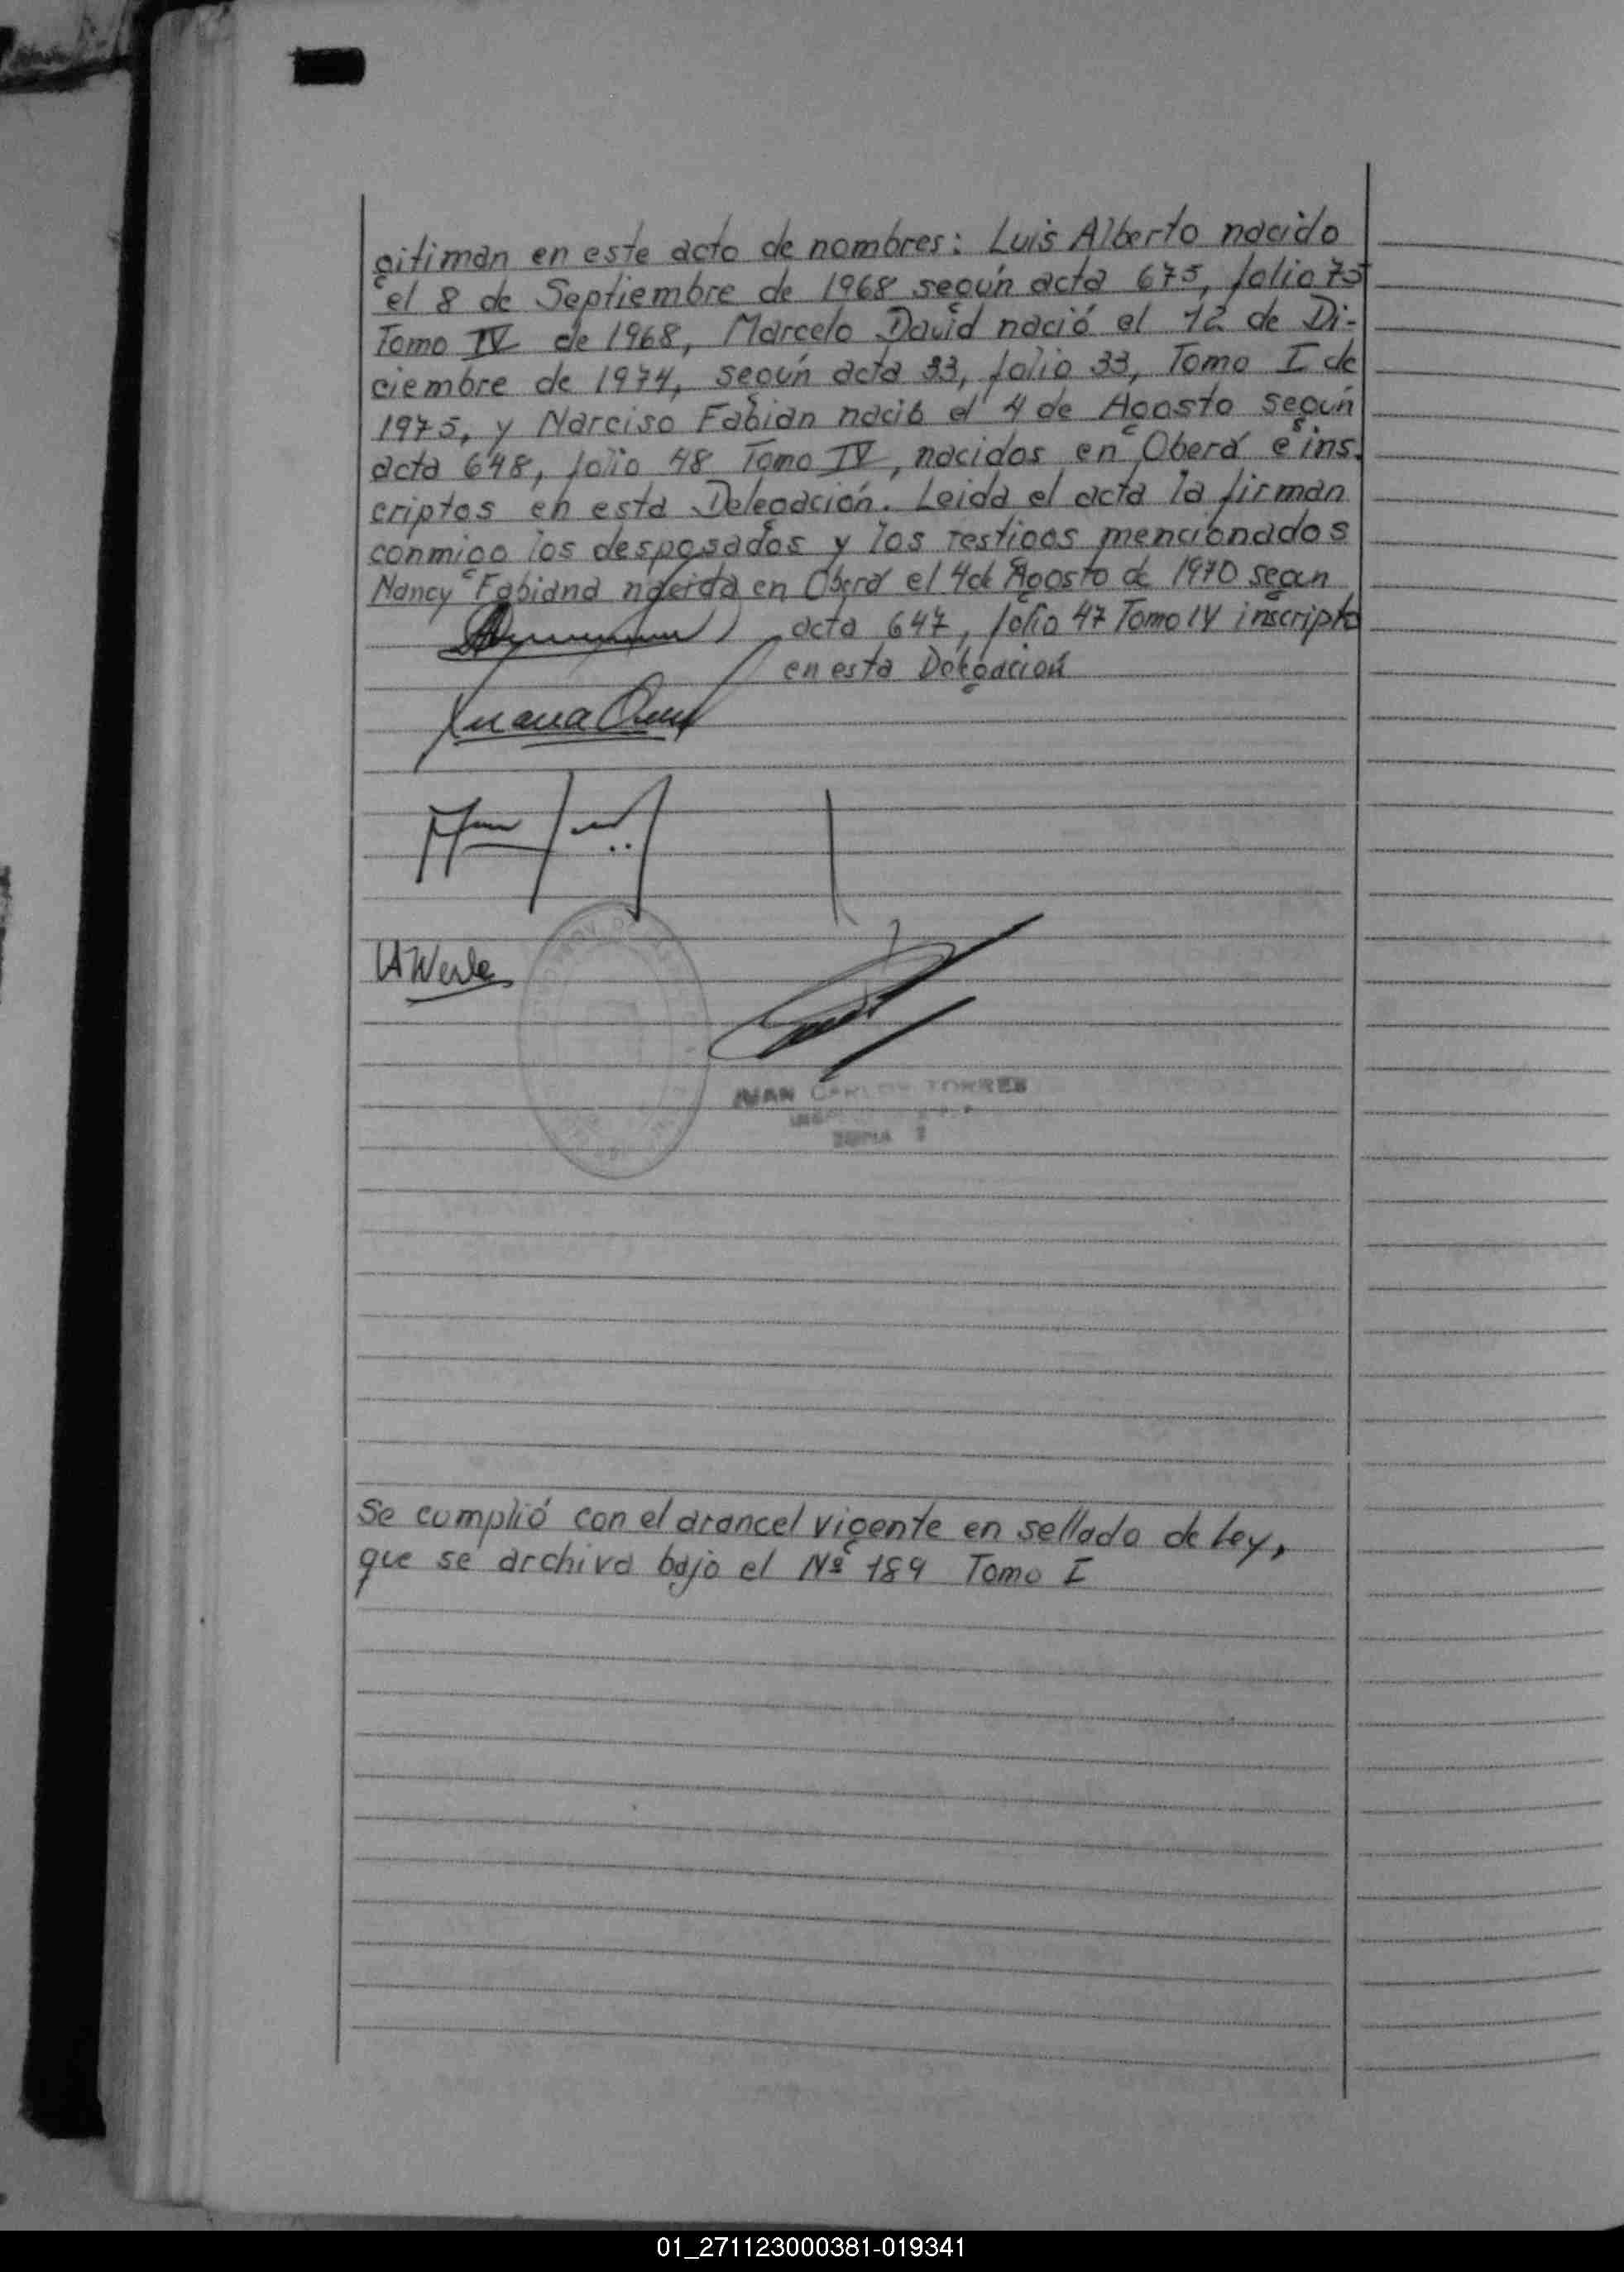 gitiman en este acto de nombres: Luis Alberto nacido
el 8 de Septiembre de 1968 según acta 675, folio 75
Tomo IV de 1968, Marcelo David nació el 12 de Di-
ciembre de 1974, según acta 33, folio 33, Tomo I de
1975, y Narciso Fabian nació el 4 de Agosto según
acta 648, folio 48 Tomo IV, nacidos en Oberá e ins.
criptos en esta Delegación. Leida el acta la firman
conmigo los desposados y los testigos mencionados
Nancy Fabiana nacida en Oberá el 4 de Agosto de 1970 segun
acta 647, folio 47 Tomo IV inscripta
en esta Delegación
Juana
Werle
JUAN CARLOS TORRES
ZONA
Se cumplió con el arancel vigente en sellado de Ley,
que se archiva bajo el Nº 189 Tomo I
01_271123000381-019341